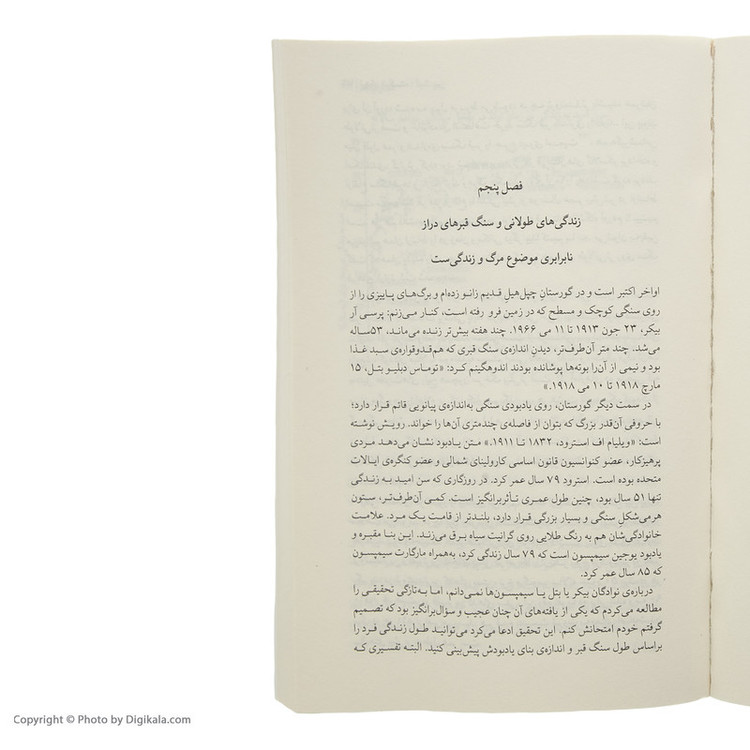 فصل پنجم
زندگی‌های طولانی و سنگ قبرهای دراز
نابرابری موضوع مرگ و زندگی‌ست
اواخر اکتبر است و در گورستانِ چپل‌هیلِ قدیم زانو زده‌ام و برگ‌های پاییزی را از
روی سنگی کوچک و مسطح که در زمین فرو رفته است، کنار می‌زنم: پرسی آر
بیکر، ۲۳ جون ۱۹۱۳ تا ۱۱ می ۱۹۶۶. چند هفته بیش‌تر زنده می‌ماند، ۵۳ساله
می‌شد. چند متر آن‌طرف‌تر، دیدنِ اندازه‌ی سنگ قبری که هم‌قدوقواره‌ی سبد غذا
بود و نیمی از آن‌را بوته‌ها پوشانده بودند اندوهگینم کرد: «توماس دبلیو بتل، ۱۵
مارچ ۱۹۱۸ تا ۱۰ می ۱۹۱۸.»
در سمت دیگر گورستان، روی یادبودی سنگی به‌اندازه‌ی پیانویی قائم قرار دارد؛
با حروفی آن‌قدر بزرگ که بتوان از فاصله‌ی چندمتری آن‌ها را خواند. رویش نوشته
است: «ویلیام اف استرود، ۱۸۳۲ تا ۱۹۱۱.» متن یادبود نشان می‌دهد مردی
پرهیزکار، عضو کنوانسیون قانون اساسی کارولینای شمالی و عضو کنگره‌ی ایالات
متحده بوده است. استرود ۷۹ سال عمر کرد. در روزگاری که سن امید به زندگی
تنها ۵۱ سال بود، چنین طول عمری تأثربرانگیز است. کمی آن‌طرف‌تر، ستون
هرمی‌شکلِ سنگی و بسیار بزرگی قرار دارد، بلندتر از قامت یک مرد. علامت
خانوادگی‌شان هم به رنگ طلایی روی گرانیت سیاه برق می‌زند. این بنا مقبره و
یادبود یوجین سیمپسون است که ۷۹ سال زندگی کرد، به‌همراه مارگارت سیمپسون
که ۸۵ سال عمر کرد.
درباره‌ی نوادگان بیکر یا بتل یا سیمپسون‌ها نمی‌دانم، اما به‌تازگی تحقیقی را
مطالعه می‌کردم که یکی از یافته‌های آن چنان عجیب و سؤال‌برانگیز بود که تصمیم
گرفتم خودم امتحانش کنم. این تحقیق ادعا می‌کرد می‌توانید طول زندگی فرد را
براساس طول سنگ قبر و اندازه‌ی بنای یادبودش پیش‌بینی کنید. البته تفسیری که
Copyright © Photo by Digikala.com